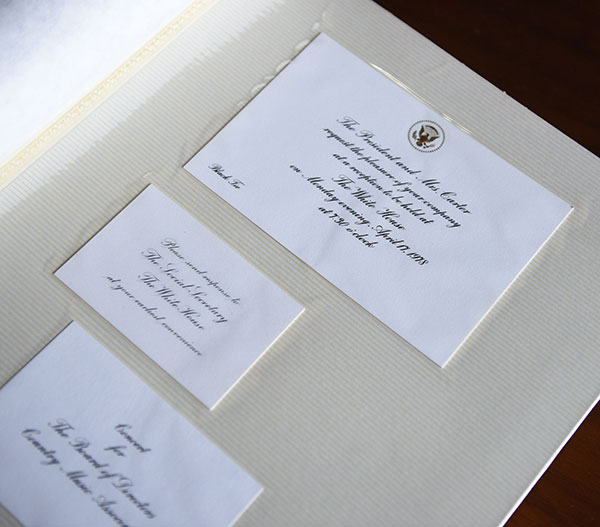 The President and Mrs. Carter
request the pleasure of your company
at a reception to be held at
The White House
on Monday evening, April 17, 1978
at 7:30 o'clock
Black Tie
Please send response to
The Social Secretary
The White House
at your earliest convenience
Concert
for
The Board of Directors
Country Music